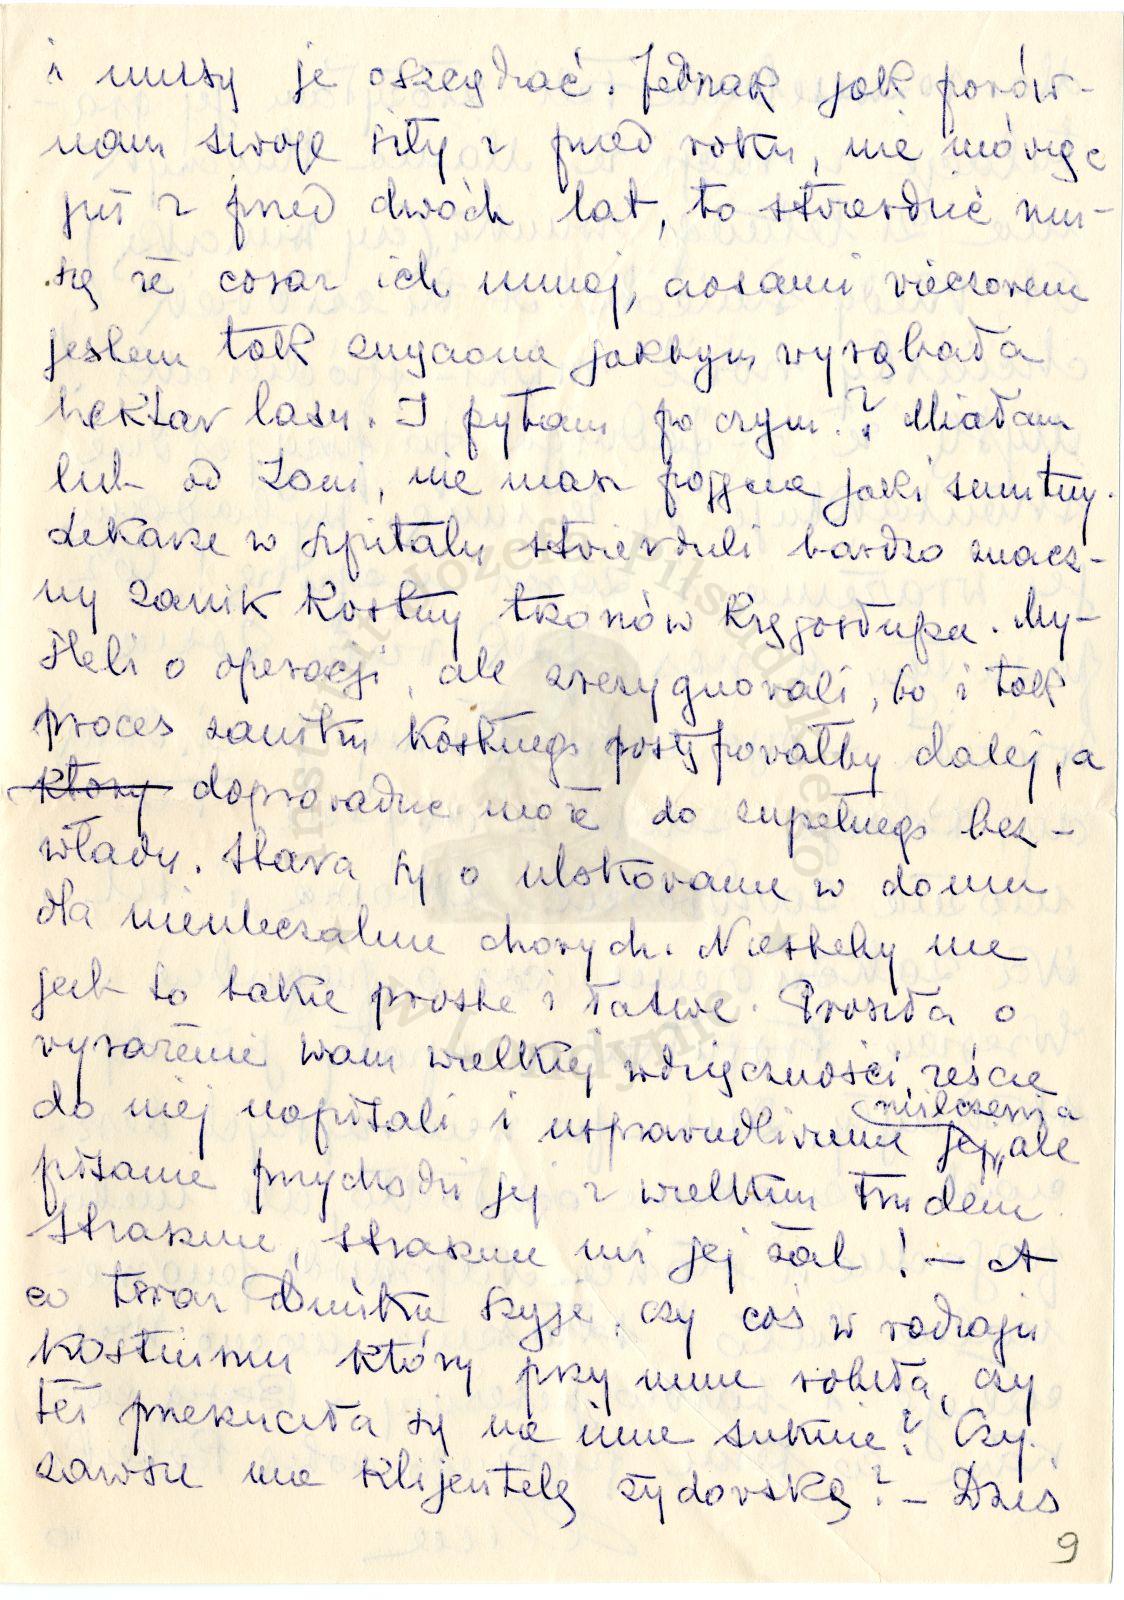 i muszę je oszczędzać. Jednak jak porów-
nam swoje siły z przed roku, nie mówiąc
już z przed dwóch lat, to stwierdzić mu-
szę że coraz ich mniej, czasami wieczorem
jestem tak zmęczona jakbym wyrąbała
hektar lasu. I pytam po czym? Miałam
list od Loni, nie masz pojęcia jaki smutny.
Lekarze w szpitalu stwierdzili bardzo znacz-
ny zanik kostny tkanów kręgosłupa. My-
śleli o operacji, ale zrezygnowali, bo i tak
proces zaniku kostnego postępowałby dalej, a
który doprowadzić może do zupełnego bez-
władu. Stara się o ulokowanie w domu
dla nieuleczalnie chorych. Niestety nie
jest to takie proste i łatwe. Prosiła o
wyrażenie wam wielkiej wdzięczności, żeście
do niej napisali i usprawiedliwienie jej milczenia, ale
pisanie przychodzi jej z wielkim trudem
Strasznie, strasznie mi jej żal! – A
co teraz Duśka szyje, czy coś w rodzaju
kostiumu który przy mnie robiła, czy
też przerzuciła się na inne suknie? Czy
zawsze ma klijentelę żydowską? – Dziś
9
Instytut Józefa Piłsudskiego
w Londynie